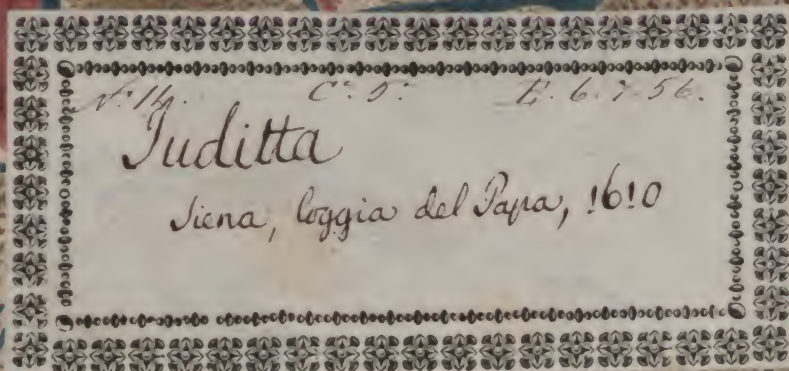 N.º 14. C.º 5.º E. 6. 7. 56.
Juditta
Siena, loggia del Papa, 1610